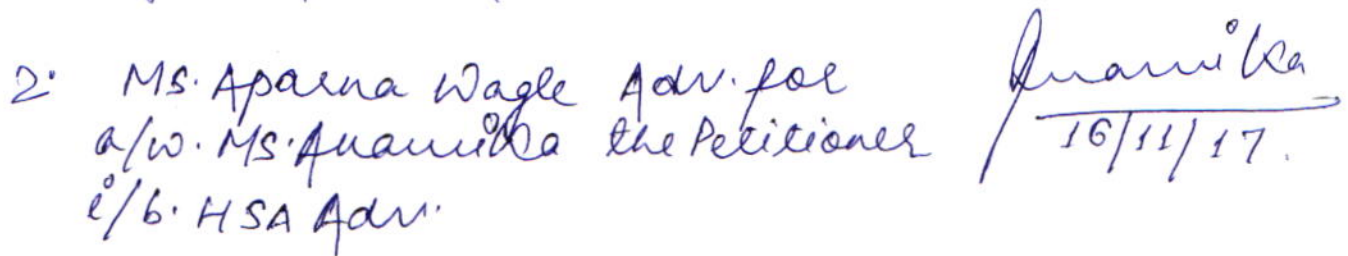 2. Ms. Aparna Wagle Adv. for
a/w. Ms. Anamika the Petitioner
i/b. HSA Adv.
Anamika
16/11/17.